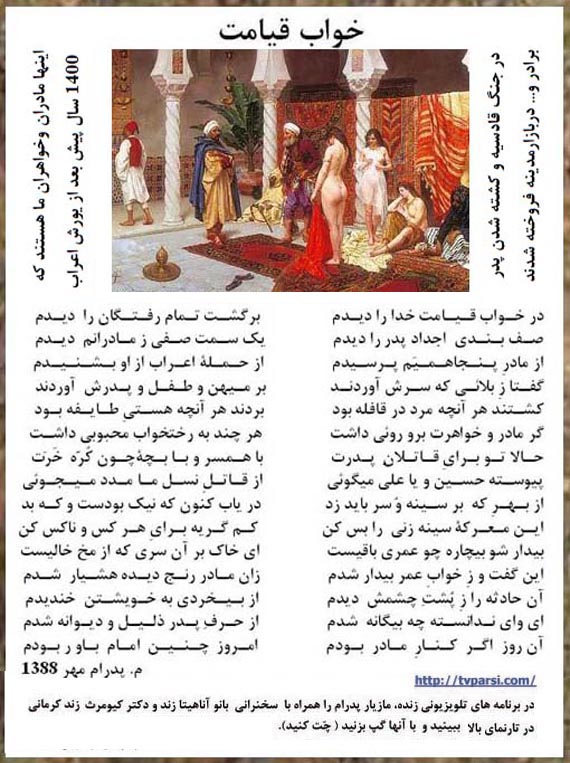 خواب قیامت
برادر و... دربازارمدینه فروخته شدند
در جنگ قادسیه و کشته شدن پدر
1400 سال پیش بعد از یورش اعراب
اینها مادران وخواهران ما هستند که
در خواب قیامت خدا را دیدم برگشت تمام رفتگان را دیدم
صف بندی اجداد پدر را دیدم یک سمت صفی ز مادرانم دیدم
از مادرِ پنجاهمیَم پرسیدم از حملهٔ اعراب از او بشنیدم
گفتا ز بلائی که سرش آوردند بر میهن و طفل و پدرش آوردند
کشتند هر آنچه مرد در قافله بود بردند هر آنچه هستیِ طایفه بود
گر مادر و خواهرت برو روئی داشت هر چند به رختخواب محبوبی داشت
حالا تو برایِ قاتلان پدرت با همسر و با بچهٔ چون کُرّه خَرت
پیوسته حسین و یا علی میگوئی از قاتلِ نسل ما مدد میجوئی
از بهرِ که بر سینه وُ سر باید زد در یاب کنون که نیک بودست و که بد
این معرکهٔ سینه زنی را بس کن کم گریه برایِ هر کس و ناکس کن
بیدار شو بیچاره چو عمری باقیست ای خاک بر آن سری که از مخ خالیست
این گفت و زِ خوابِ عمر بیدار شدم زان مادر رنج دیده هشیار شدم
آن حادثه را ز پُشتِ چشمش دیدم از بیخردی به خویشتن خندیدم
ای وای ندانسته چه بیگانه شدم از حرفِ پدر ذلیل و دیوانه شدم
آن روز اگر کنارِ مادر بودم امروز چنین امام باور بودم
م. پدرام مهر 1388
http://tvparsi.com/
در برنامه های تلویزیونی زنده، مازیار پدرام را همراه با سخنرانی بانو آناهیتا زند و دکتر کیومرث زند کرمانی
در تارنمای بالا ببینید و با آنها گپ بزنید ( چَت کنید).